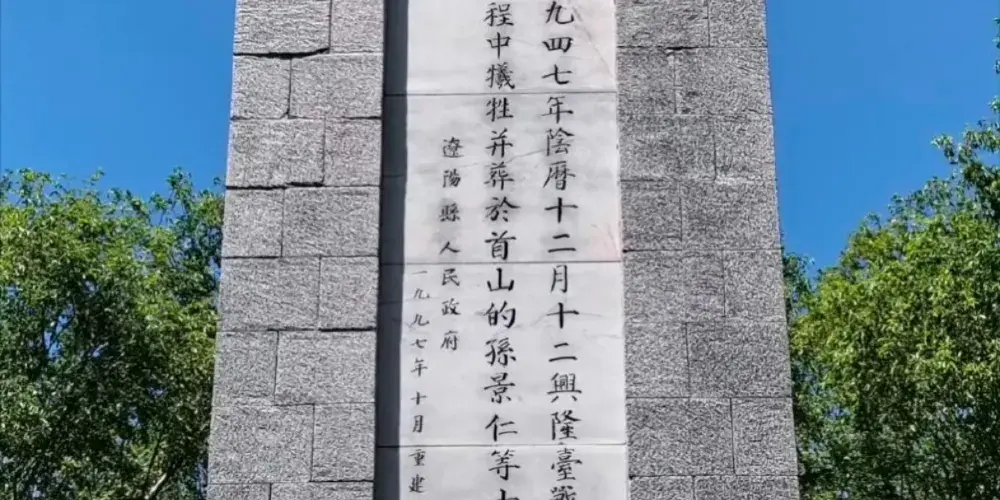 九四七年陰曆十二月十二興隆臺戰
程中犧牲并葬於首山的孫景仁等
遼陽縣人民政府
一九九七年十月重建